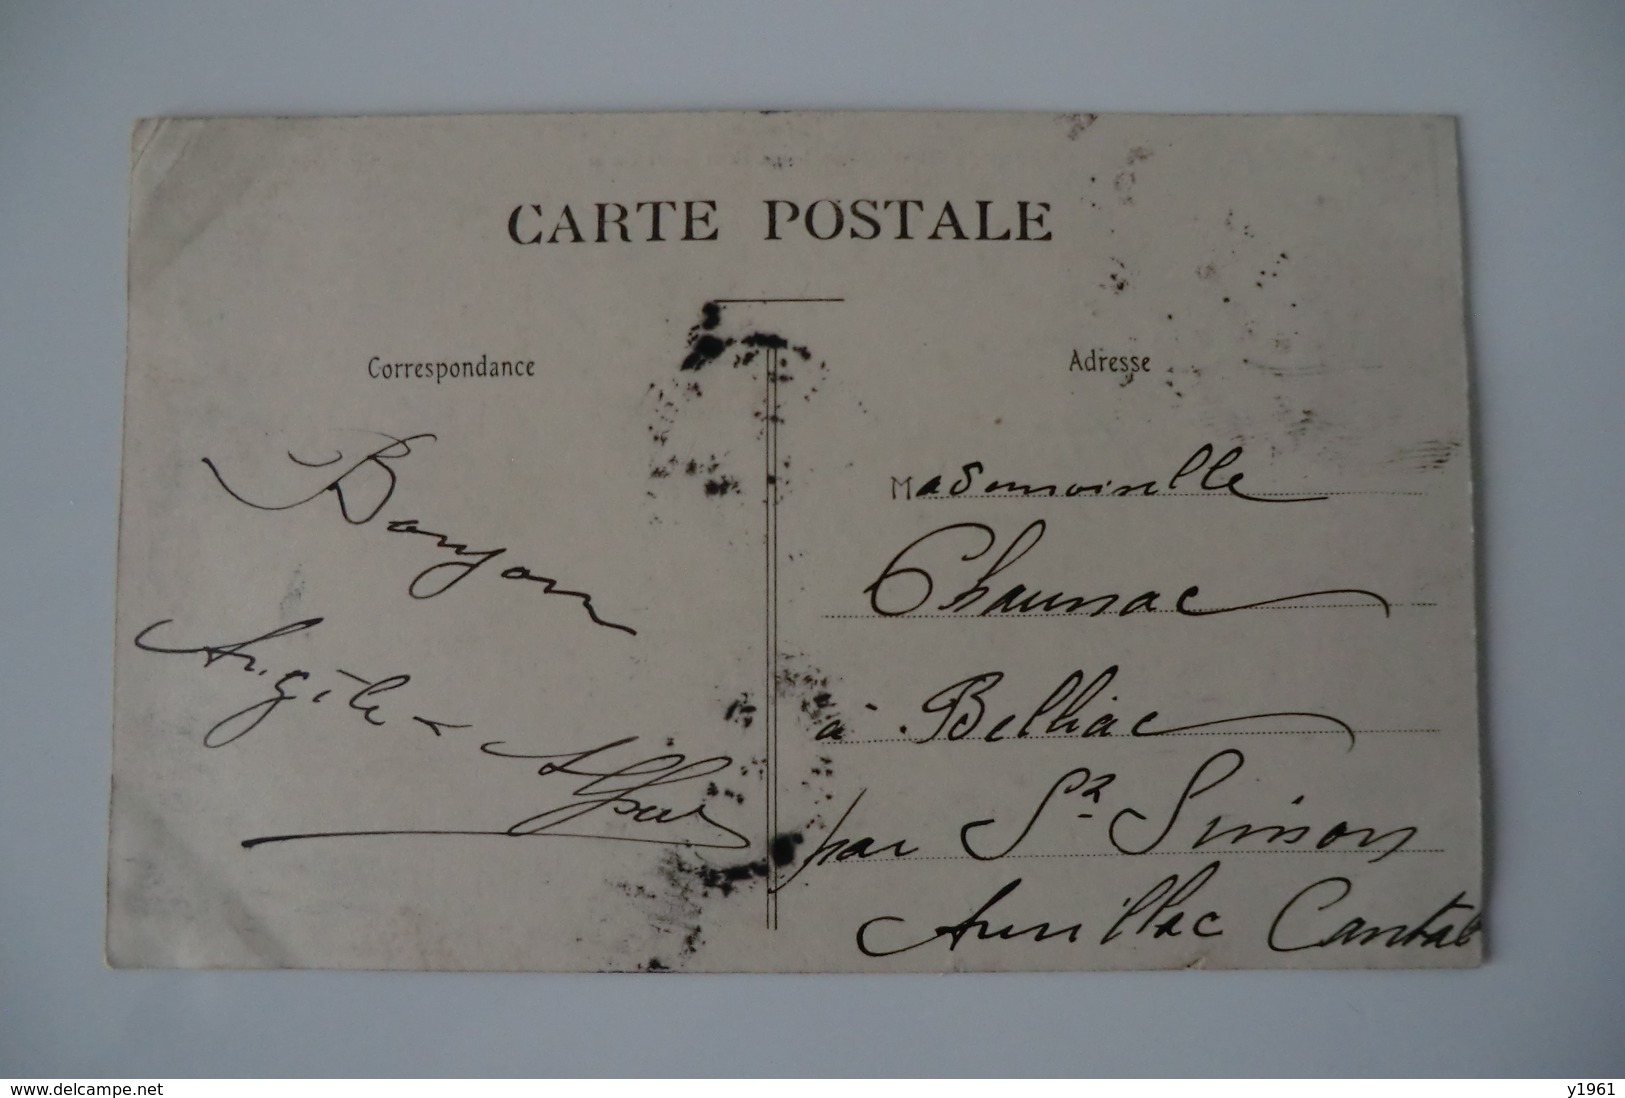 CARTE POSTALE
Correspondance
Adresse
Bonjour
Angèle
Mademoiselle
Chaunac
à Belliac
par St Simon
Aurillac Cantal
www.delcampe.net
y1961